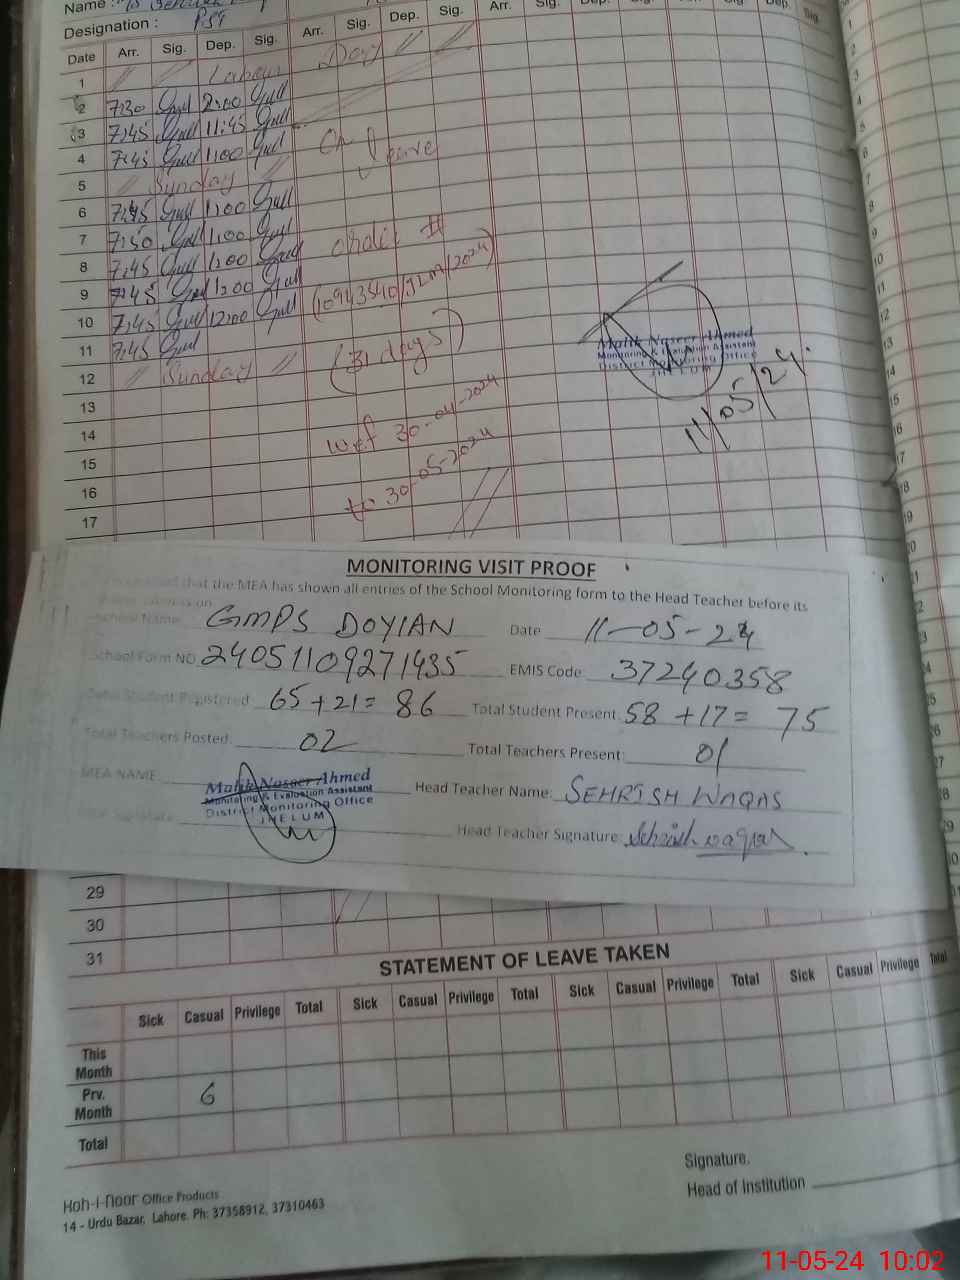 Name :
Designation : PST
Date Arr. Sig. Dep. Sig. Arr. Sig. Dep. Sig. Arr. Sig. Dep. Sig. Dep. Sig.
1 // Labour Day //
2 7:30 2:00
3 7:45 11:45
4 7:45 1:00 On Leave
5 // Sunday //
6 7:45 1:00
7 7:50 1:00 order #
8 7:45 1:00
9 7:45 1:00 (10943540/JLM/2024)
10 7:45 12:00
11 7:45 (31 days)
12 // Sunday //
13
14 w.e.f 30-04-2024
15
16 to 30-05-2024
17
Malik Naseer Ahmed
Monitoring & Evaluation Assistant
District Monitoring Office
JHELUM
11/05/24.
MONITORING VISIT PROOF
that the MEA has shown all entries of the School Monitoring form to the Head Teacher before its
School Name GMPS DOYIAN Date 11-05-24
School Form NO. 24051109271435 EMIS Code: 37240358
Total Student Registered: 65+21= 86 Total Student Present: 58 +17= 75
Total Teachers Posted: 02 Total Teachers Present: 01
MEA NAME Malik Naseer Ahmed Head Teacher Name: SEHRISH WAQAS
Monitoring & Evaluation Assistant
District Monitoring Office
JHELUM
Head Teacher Signature: Sehrish waqas
29
30
31
STATEMENT OF LEAVE TAKEN
Sick Casual Privilege Total Sick Casual Privilege Total Sick Casual Privilege Total Sick Casual Privilege Total
This Month
Prv. Month 6
Total
Signature.
Head of Institution
Koh-i-noor Office Products
14 - Urdu Bazar, Lahore. Ph: 37358912, 37310463
11-05-24 10:02